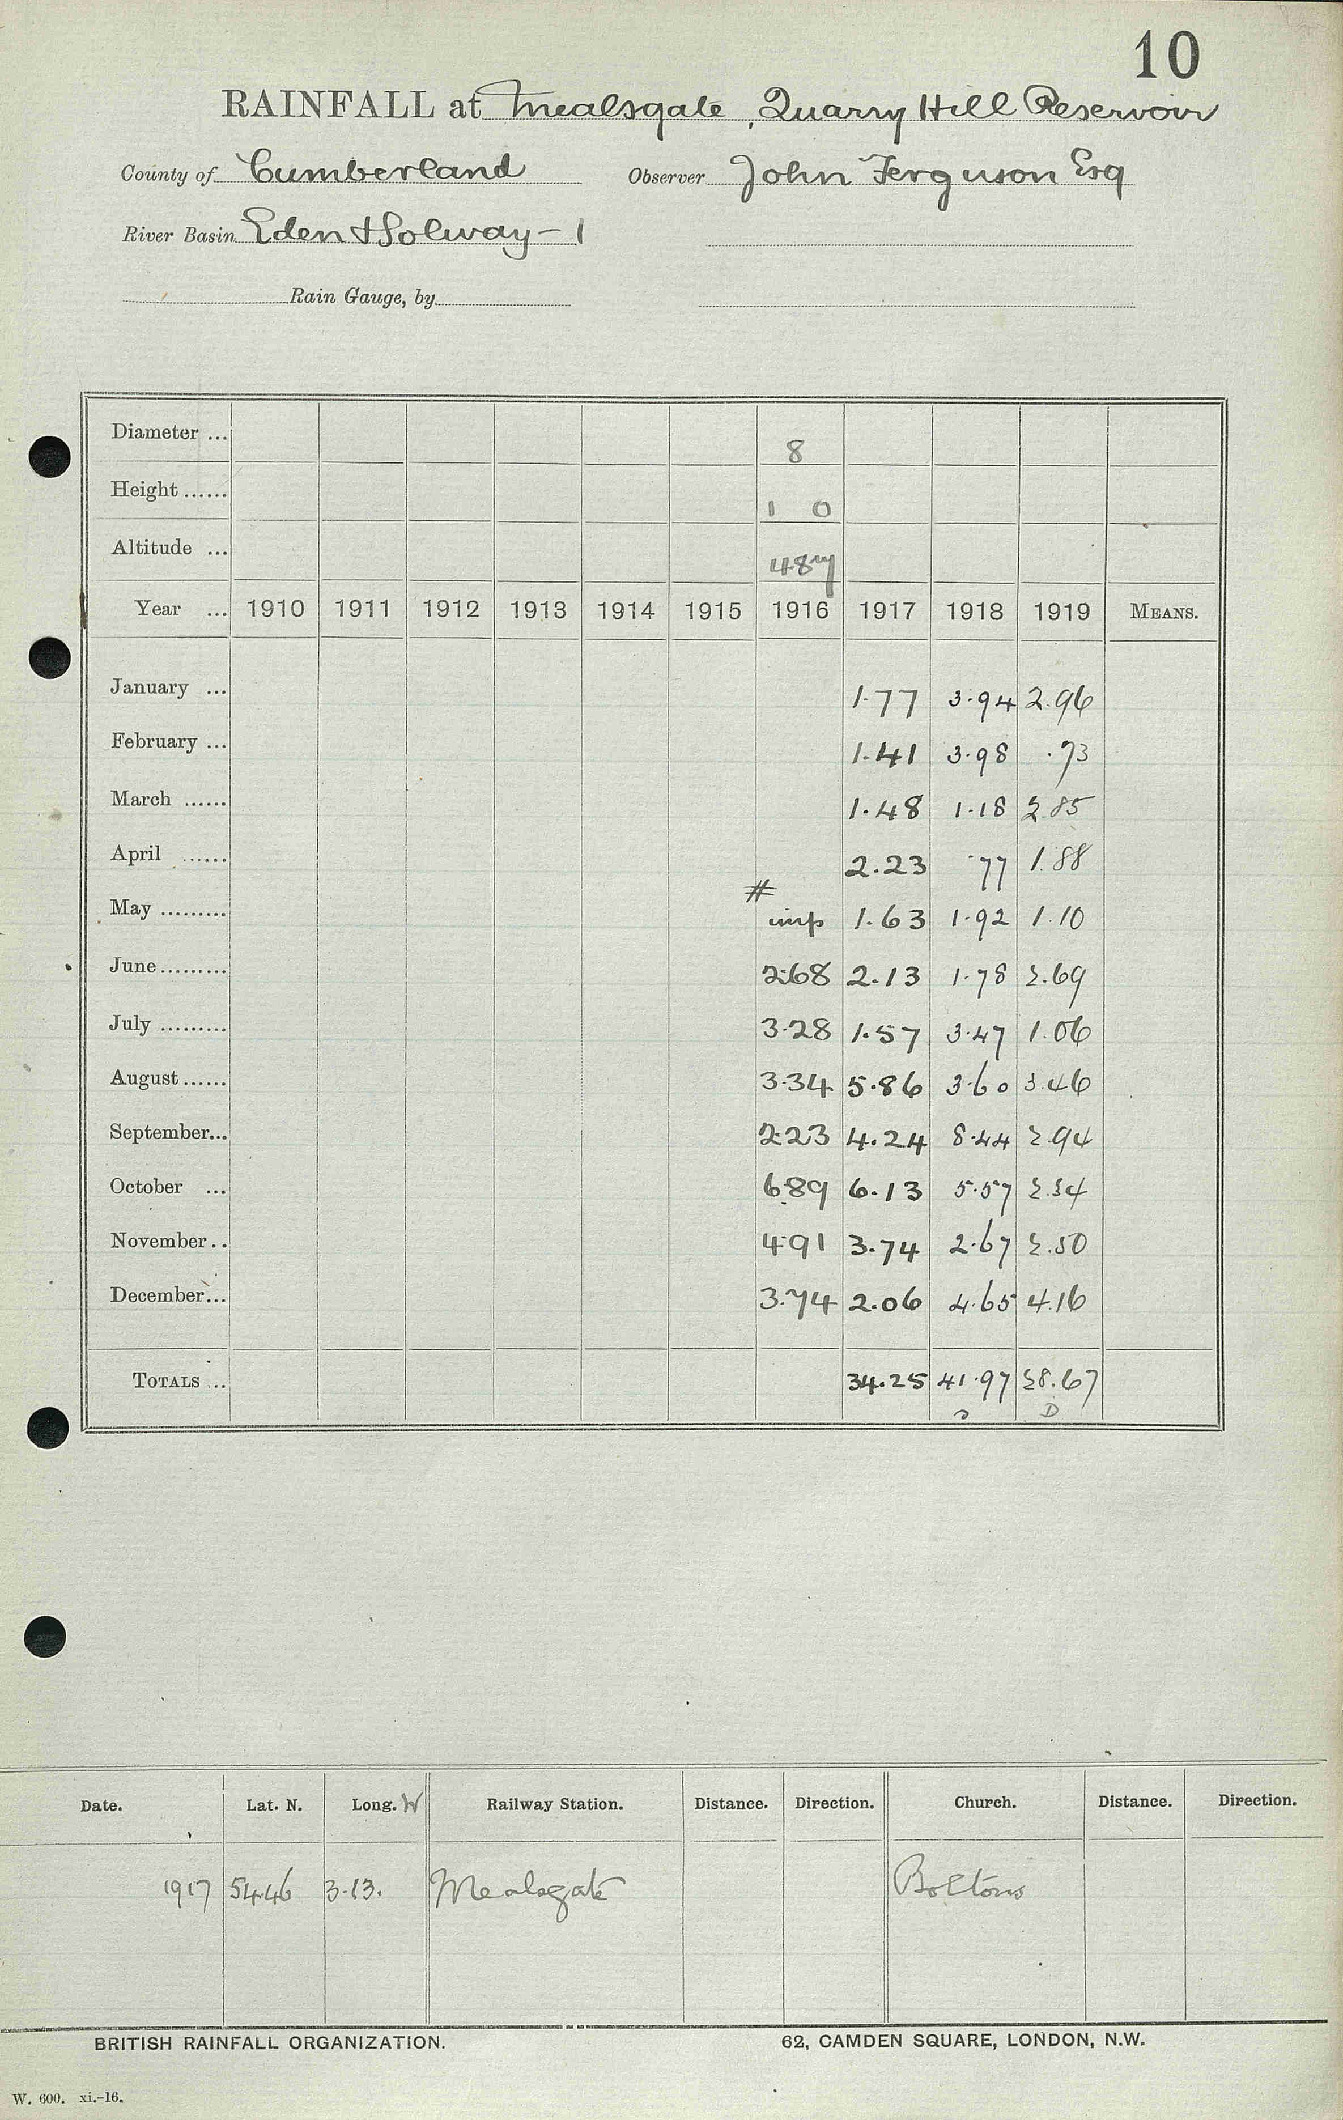 10
RAINFALL at Mealsgate, Quarry Hill Reservoir
County of Cumberland Observer John Ferguson Esq
River Basin Eden & Solway - 1
Rain Gauge, by
Diameter ... 8
Height ...... 1 0
Altitude ... 487
Year ... 1910 1911 1912 1913 1914 1915 1916 1917 1918 1919 MEANS.
January ... 1.77 3.94 2.96
February ... 1.41 3.98 .73
March ...... 1.48 1.18 2.85
April ...... 2.23 .77 1.88
May ......... # imp 1.63 1.92 1.10
June ......... 2.68 2.13 1.78 2.69
July ......... 3.28 1.57 3.47 1.06
August ...... 3.34 5.86 3.60 3.46
September... 2.23 4.24 8.44 2.94
October ... 6.89 6.13 5.57 2.34
November .. 4.91 3.74 2.67 2.50
December... 3.74 2.06 4.65 4.16
TOTALS ... 34.25 41.97 28.67
D
Date. Lat. N. Long. W Railway Station. Distance. Direction. Church. Distance. Direction.
1917 54.46 3.13. Mealsgate Boltons
BRITISH RAINFALL ORGANIZATION. 62, CAMDEN SQUARE, LONDON, N.W.
W. 600. xi.-16.